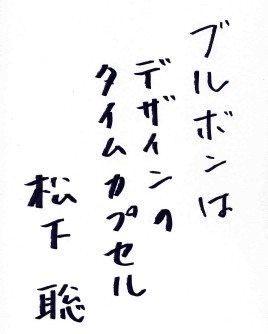 ブルボンは
デザインの
タイムカプセル
松下 聡